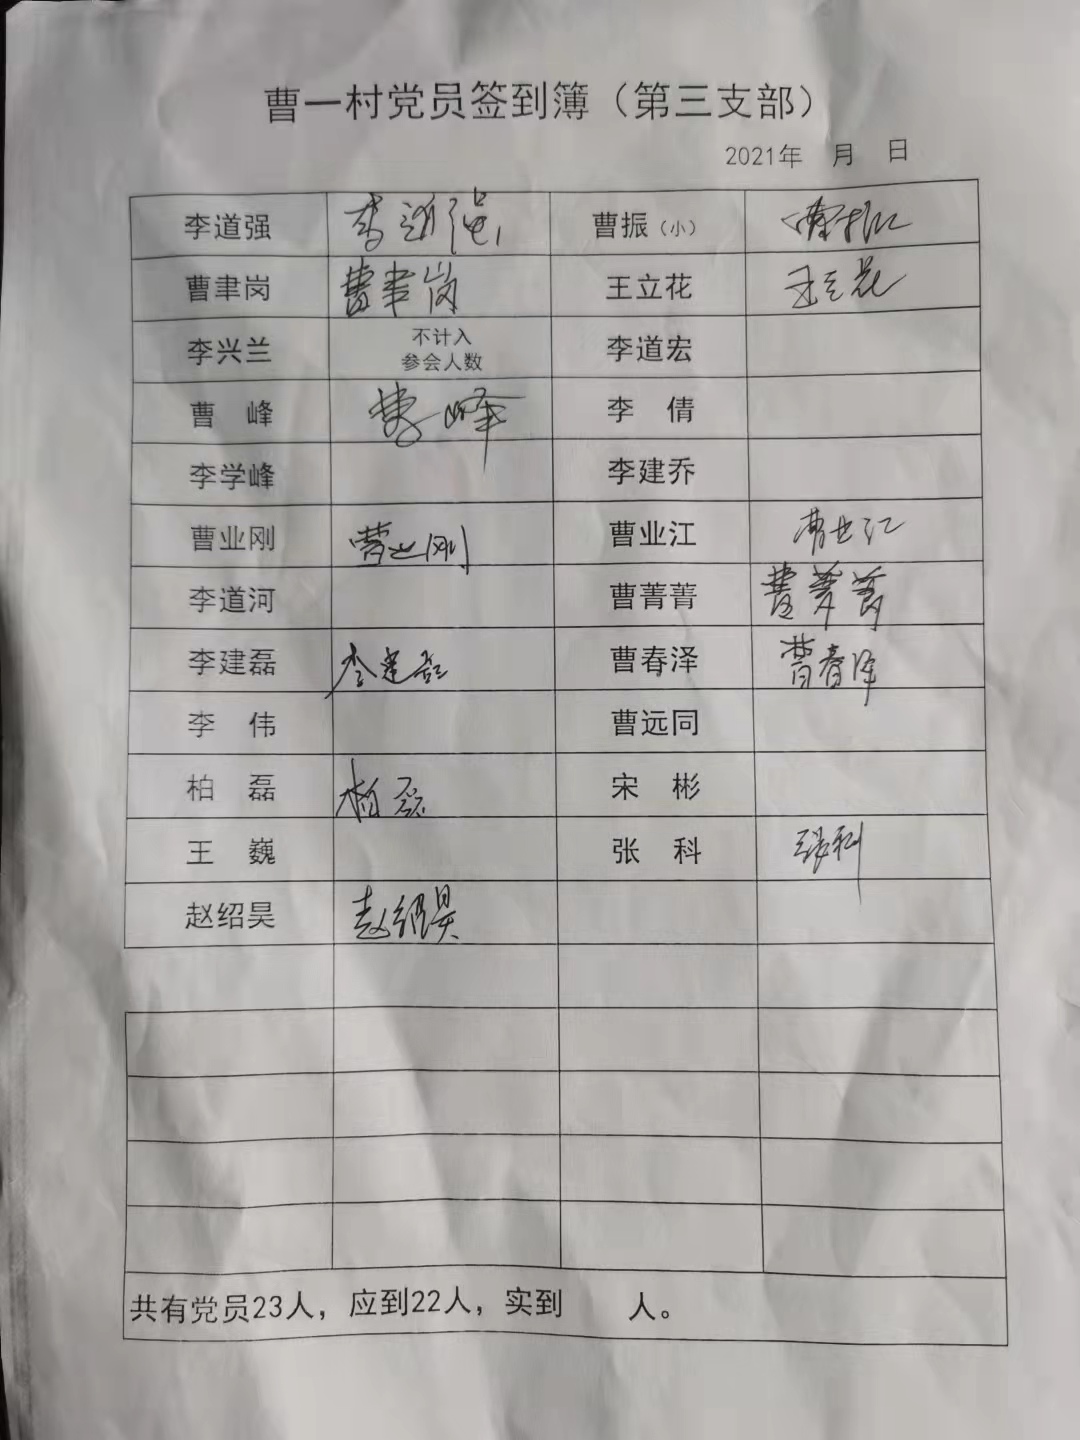 曹一村党员签到簿（第三支部）
2021年 月 日
李道强 李道强 曹振（小） 曹振
曹聿岗 曹聿岗 王立花 王立花
李兴兰 不计入 李道宏
参会人数
曹 峰 曹峰 李 倩
李学峰 李建乔
曹业刚 曹业刚 曹业江 曹业江
李道河 曹菁菁 曹菁菁
李建磊 李建磊 曹春泽 曹春泽
李 伟 曹远同
柏 磊 柏磊 宋 彬
王 巍 张 科 张科
赵绍昊 赵绍昊
共有党员23人，应到22人，实到 人。